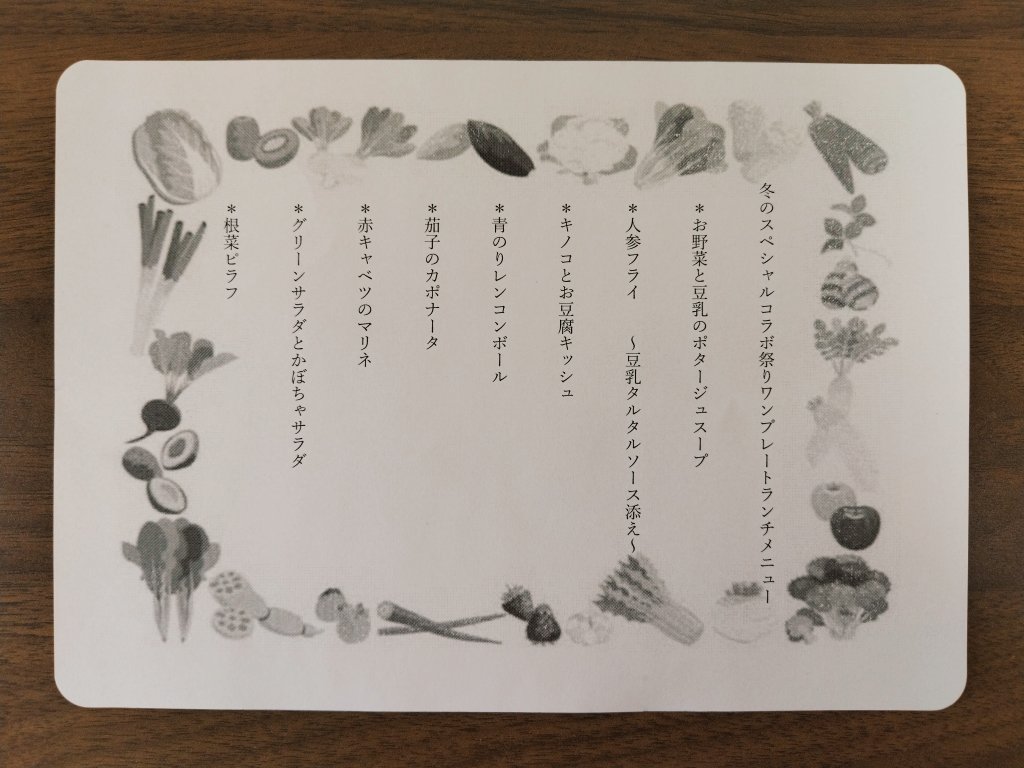 冬のスペシャルコラボ祭りワンプレートランチメニュー
＊お野菜と豆乳のポタージュスープ
＊人参フライ　～豆乳タルタルソース添え～
＊キノコとお豆腐キッシュ
＊青のりレンコンボール
＊茄子のカポナータ
＊赤キャベツのマリネ
＊グリーンサラダとかぼちゃサラダ
＊根菜ピラフ